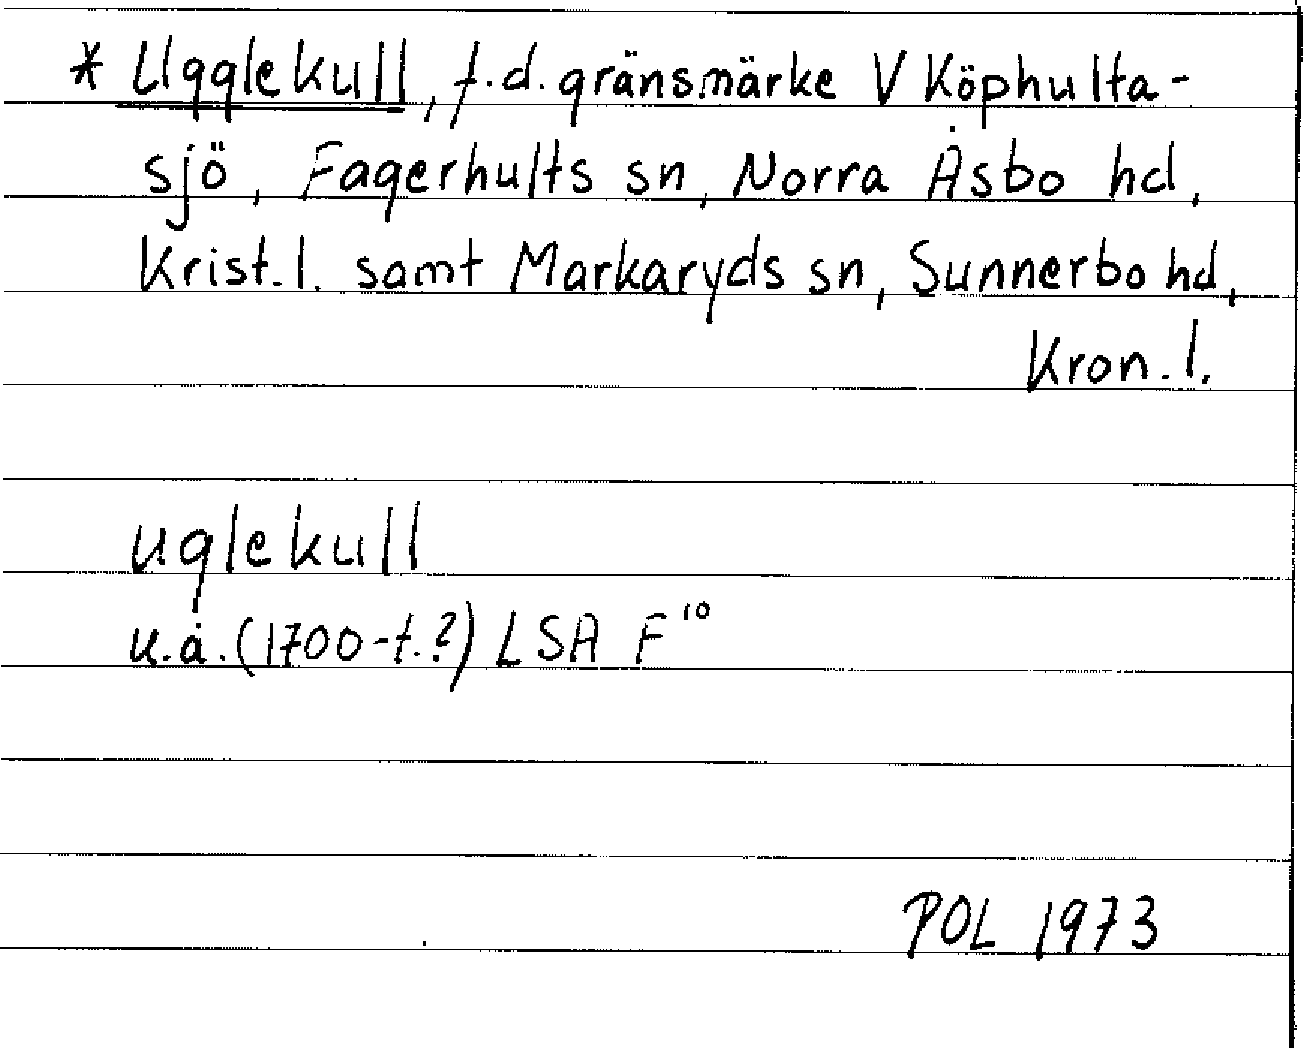 * Ugglekull, f.d. gränsmärke V Köphulta-
sjö, Fagerhults sn, Norra Åsbo hd,
Krist. l. samt Markaryds sn, Sunnerbo hd,
Kron. l.
uglekull
u.å. (1700-t.?) LSA F¹⁰
POL 1973